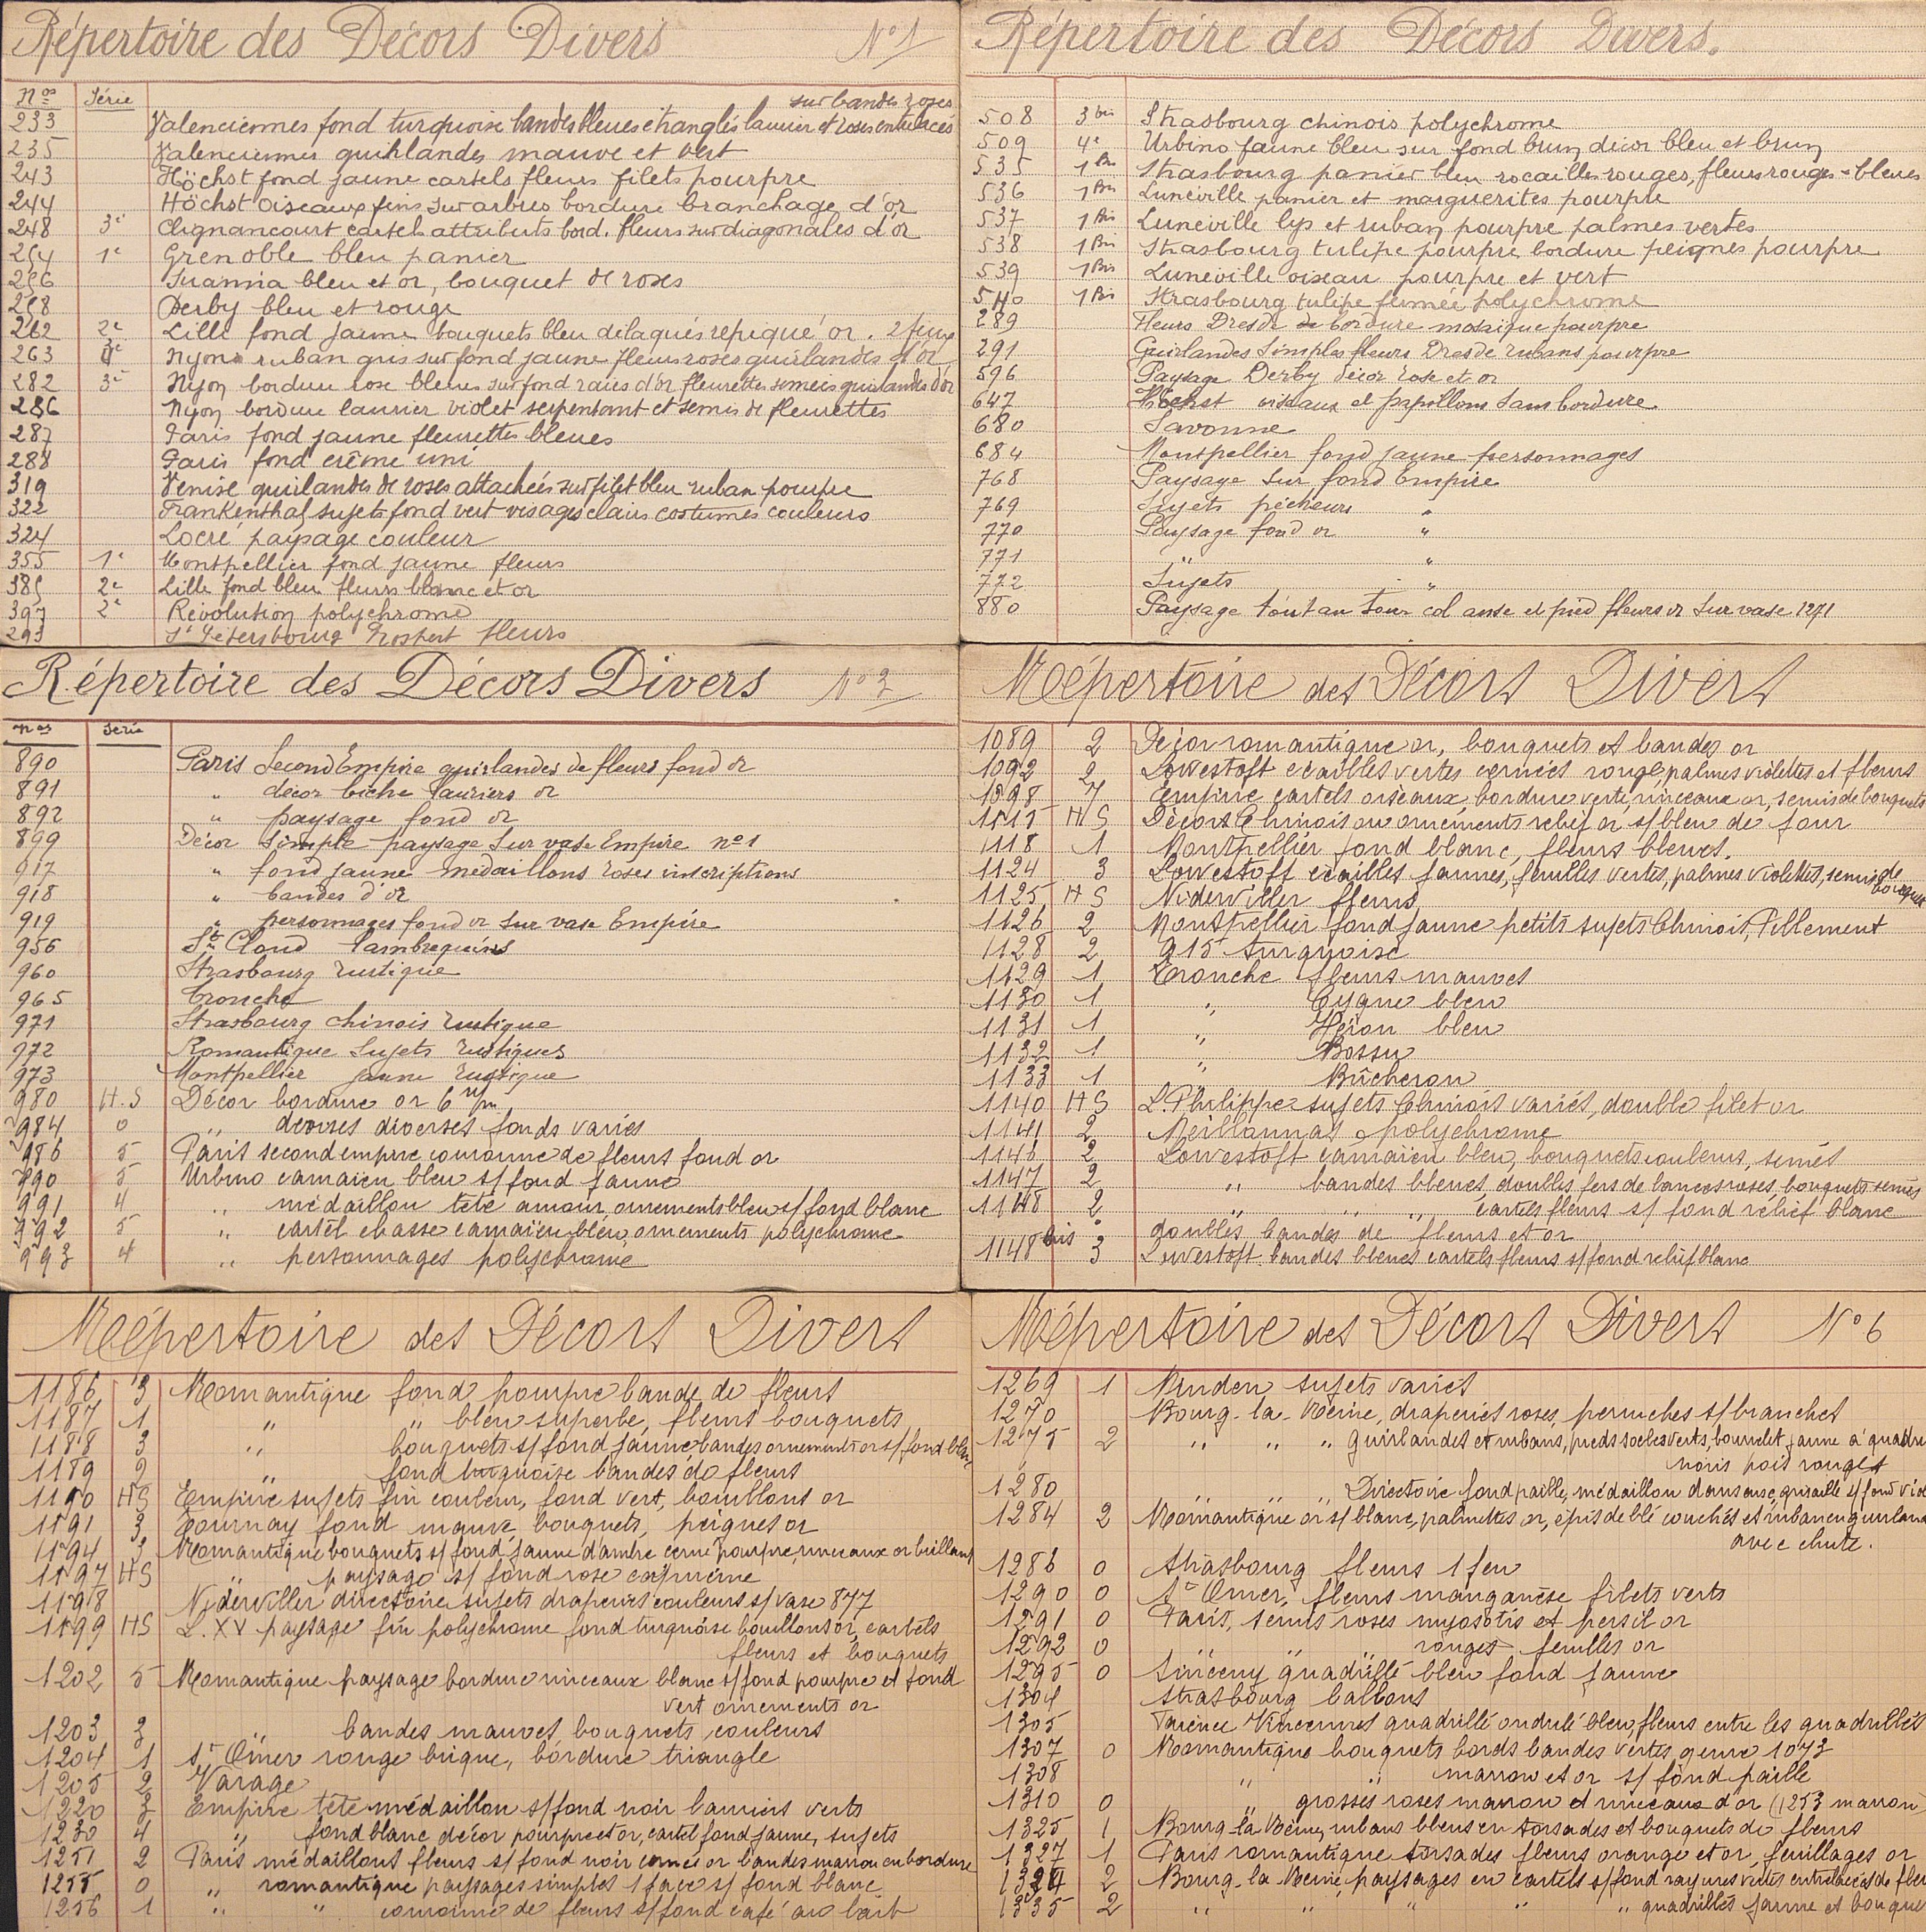 Répertoire des Décors Divers N°1
Nos Série
sur bandes roses
233 Valenciennes fond turquoise bandes bleues étranglés laurier et roses entrelacés
235 Valenciennes guirlandes mauve et vert
243 Höchst fond jaune cartels fleurs filets pourpre
244 Höchst oiseaux fins sur arbres bordure branchage d'or
248 3e Clignancourt cartels attributs bord. fleurs sur diagonales d'or
254 1e Grenoble bleu panier
256 bleu et or, bouquet de roses
258 Derby bleu et rouge
262 2e Lille fond jaune bouquets bleu délaqués repiqué or. 2 feux
263 Nyon ruban gris sur fond jaune fleurs roses guirlandes d'or
282 3e Nyon bordure rose bleues sur fond raies d'or fleurettes semées guirlandes d'or
286 Nyon bordure laurier violet serpentant et semis de fleurettes
287 Paris fond jaune fleurettes bleues
288 Paris fond crême uni
319 Venise guirlandes de roses attachées sur filet bleu ruban pourpre
322 Frankenthal sujets fond vert visages clairs costumes couleurs
324 Locré paysage couleur
355 1e Montpellier fond jaune fleurs
385 2e Lille fond bleu fleurs blanc et or
397 2e Révolution polychrome
293 St Petersbourg Prospert fleurs
Répertoire des Décors Divers.
508 3bis Strasbourg chinois polychrome
509 4e Urbino faune bleu sur fond brun décor bleu et brun
535 1Bis Strasbourg panier bleu rocailles rouges, fleurs rouges & bleues
536 1Bis Lunéville panier et marguerites pourpre
537 1Bis Lunéville lys et ruban pourpre palmes vertes
538 1Bis Strasbourg tulipe pourpre bordure peignes pourpre
539 1Bis Lunéville oiseau pourpre et vert
540 1Bis Strasbourg tulipe fermée polychrome
289 Fleurs Dresde bordure mosaïque pourpre
291 Guirlandes simples fleurs Dresde rubans pourpre
596 Paysage Derby décor rose et or
647 Höchst oiseaux et papillons sans bordure
680 Savonne
684 Montpellier fond jaune personnages
768 Paysage sur fond Empire
769 Sujets pêcheurs "
770 Paysage fond or "
771 " "
772 Sujets "
880 Paysage tout au tour col anse et pied fleurs or sur vase 1271
Répertoire des Décors Divers N°3
nos Serie
890 Paris Second Empire guirlandes de fleurs fond or
891 " décor biche lauriers or
892 " paysage fond or
899 Décor simple paysage sur vase Empire n°1
917 " fond jaune médaillons roses inscriptions
918 " bandes d'or
919 " personnages fond or sur vase Empire
956 St Cloud lambrequins
960 Strasbourg rustique
965 Tronche
971 Strasbourg chinois rustique
972 Romantique sujets rustiques
973 Montpellier jaune rustique
980 H.S Décor bordure or 6 m/m
984 0 " devises diverses fonds variés
986 5 Paris second empire couronne de fleurs fond or
990 5 Urbino camaïeu bleu s/ fond jaune
991 4 " médaillon tête amour, ornements bleu s/ fond blanc
992 5 " cartel chasse camaïeu bleu, ornements polychrome
993 4 " personnages polychrome
Répertoire des Décors Divers
1089 2 Décor romantique or, bouquets et bandes or
1092 2 Lowestoft écailles vertes cernées rouge, palmes violettes et fleurs
1098 7 Empire cartels oiseaux, bordure verte, rinceaux or, semis de bouquets
1115 HS Décors Chinois ou ornements relief or s/ bleu de four
1118 1 Montpellier fond blanc, fleurs bleues.
1124 3 Lowestoft écailles jaunes, feuilles vertes, palmes violettes, semis de bouquets
1125 HS Niderviller fleurs
1126 2 Montpellier fond jaune petits sujets Chinois, Pillement
1128 2 915 turquoise
1129 1 Tronche fleurs mauves
1130 1 " Cygne bleu
1131 1 " Héron bleu
1132 1 " Bossu
1133 1 " Bûcheron
1140 HS L. Philippe sujets Chinois variés, double filet or
1141 2 Meillonnas polychrome
1146 2 Lowestoft camaïeu bleu, bouquets couleurs, semés
1147 2 " bandes bleues, doubles fers de lances roses, bouquets semés
1148 2 " " " cartels fleurs s/ fond relief blanc
doubles bandes de fleurs et or
1148bis 3 Lowestoft. bandes bleues cartels fleurs s/ fond relief blanc
Répertoire des Décors Divers
1186 3 Romantique fond pourpre bande de fleurs
1187 1 " " bleu superbe, fleurs bouquets
1188 3 " bouquets s/ fond jaune bandes ornements or s/ fond bleu
1189 2 " fond turquoise bandes de fleurs
1190 HS Empire sujets fin couleur, fond vert, bouillons or
1191 3 Tournay fond mauve, bouquets, peignes or
1194 3 Romantique bouquets s/ fond jaune d'ambre cerné pourpre, rinceaux or brillant
1197 HS " paysage s/ fond rose
1198 Niderviller directoire sujets draperies couleurs s/ vase 877
1199 HS L. XV paysage fin polychrome fond turquoise bouillons or, cartels
fleurs et bouquets
1202 5 Romantique paysage bordure rinceaux blanc s/ fond pourpre et fond
vert ornements or
1203 3 " bandes mauves, bouquets couleurs
1204 1 St Omer rouge brique, bordure triangle
1205 2 Varage
1220 3 Empire tête médaillon s/ fond noir lauriers verts
1230 4 " fond blanc décor pourpre et or, cartel fond jaune, sujets
1251 2 Paris médaillons fleurs s/ fond noir cernés or bandes marron en bordure
1255 0 " romantique paysages simples 1 face s/ fond blanc
1256 1 " " couronne de fleurs s/ fond café au lait
Répertoire des Décors Divers N°6
1269 1 Minden sujets variés
1270 Bourg-la-Reine, draperies roses, perruches s/ branches
1275 2 " " " guirlandes et rubans, pieds socles verts, bourrelet jaune à quadrillé
noirs pois rouges
1280 " " " Directoire fond paille, médaillon danseuse, grisaille s/ fond viol
1284 2 Romantique or s/ blanc, palmettes or, épis de blé couchés et ruban en guirland
avec chute.
1286 0 Strasbourg fleurs 1 feu
1290 0 St Omer, fleurs manganèse filets verts
1291 0 Paris, semis roses myosotis et persil or
1292 0 " " rouges feuilles or
1295 0 Sinceny quadrillé bleu fond jaune
1304 Strasbourg ballons
1305 Faïence Vincennes quadrillé ondulé bleu, fleurs entre les quadrillés
1307 0 Romantique bouquets bords bandes vertes genre 1073
1308 " " marron et or s/ fond paille
1310 0 " grosses roses marron et rinceaux d'or (1253 marron)
1325 1 Bourg-la-Reine, rubans bleus en torsades et bouquets de fleurs
1327 1 Paris romantique torsades fleurs orange et or, feuillages or
1334 2 Bourg-la-Reine, paysages en cartels s/ fond rayures vertes entrelacées de fleu
1335 2 " " " " " quadrillés jaune et bouque